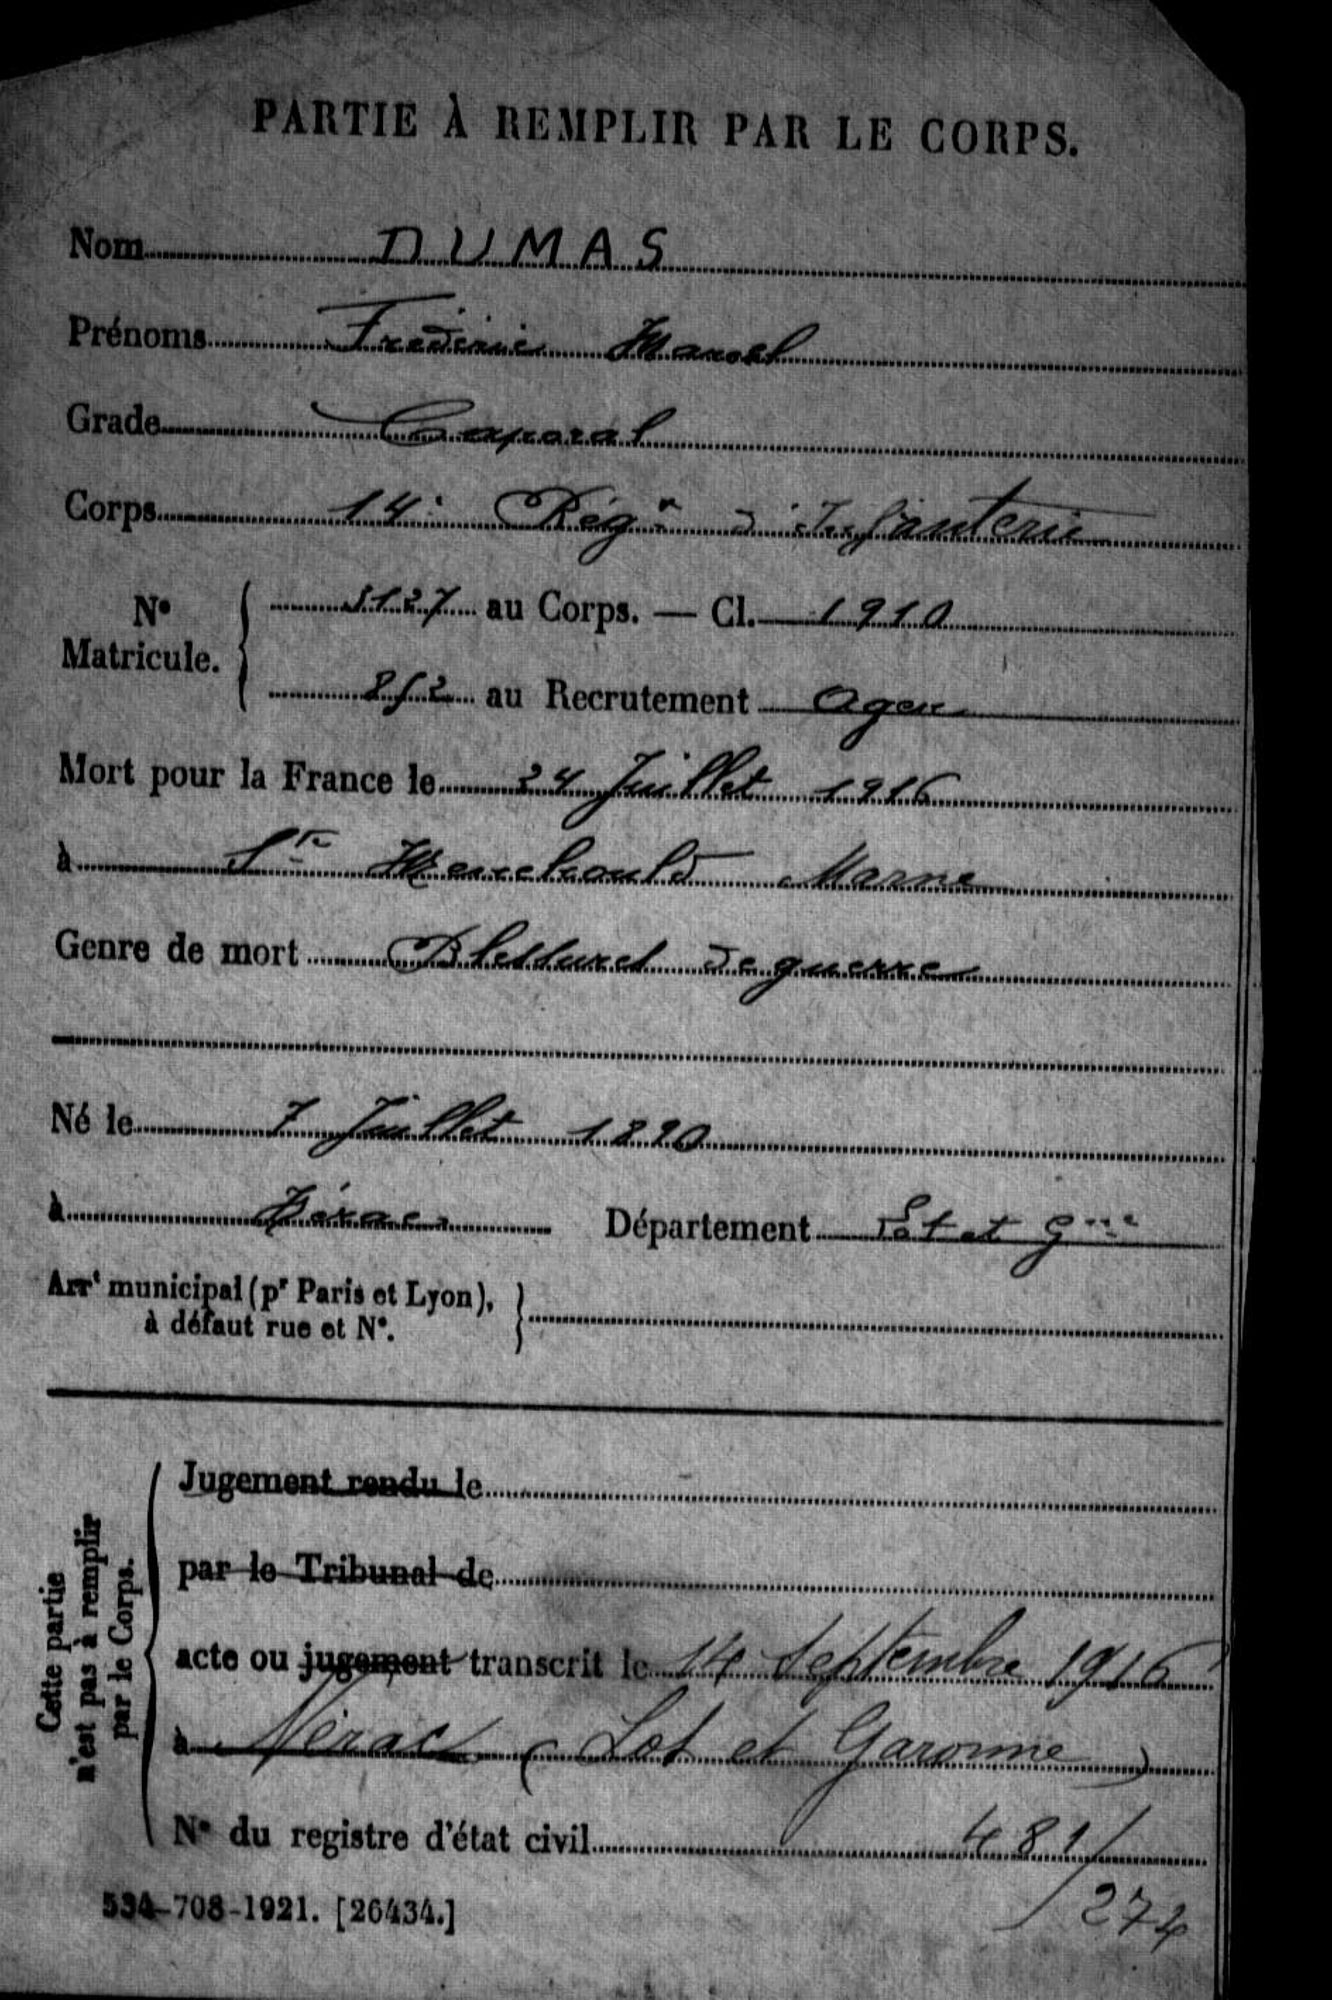 PARTIE À REMPLIR PAR LE CORPS.
Nom DUMAS
Prénoms Fréderic Marcel
Grade Caporal
Corps 14e Régt d'Infanterie
No Matricule. { 5127 au Corps. — Cl. 1910
852 au Recrutement Agen
Mort pour la France le 24 Juillet 1916
à Ste Menehould Marne
Genre de mort Blessures de guerre
Né le 7 Juillet 1890
à Nérac Département Lot et Gne
Arrt municipal (pr Paris et Lyon), à défaut rue et No. }
Cette partie n'est pas à remplir par le Corps.
Jugement rendu le
par le Tribunal de
acte ou jugement transcrit le 14 Septembre 1916
à Nérac (Lot et Garonne)
No du registre d'état civil 481/
274
534-708-1921. [26434.]